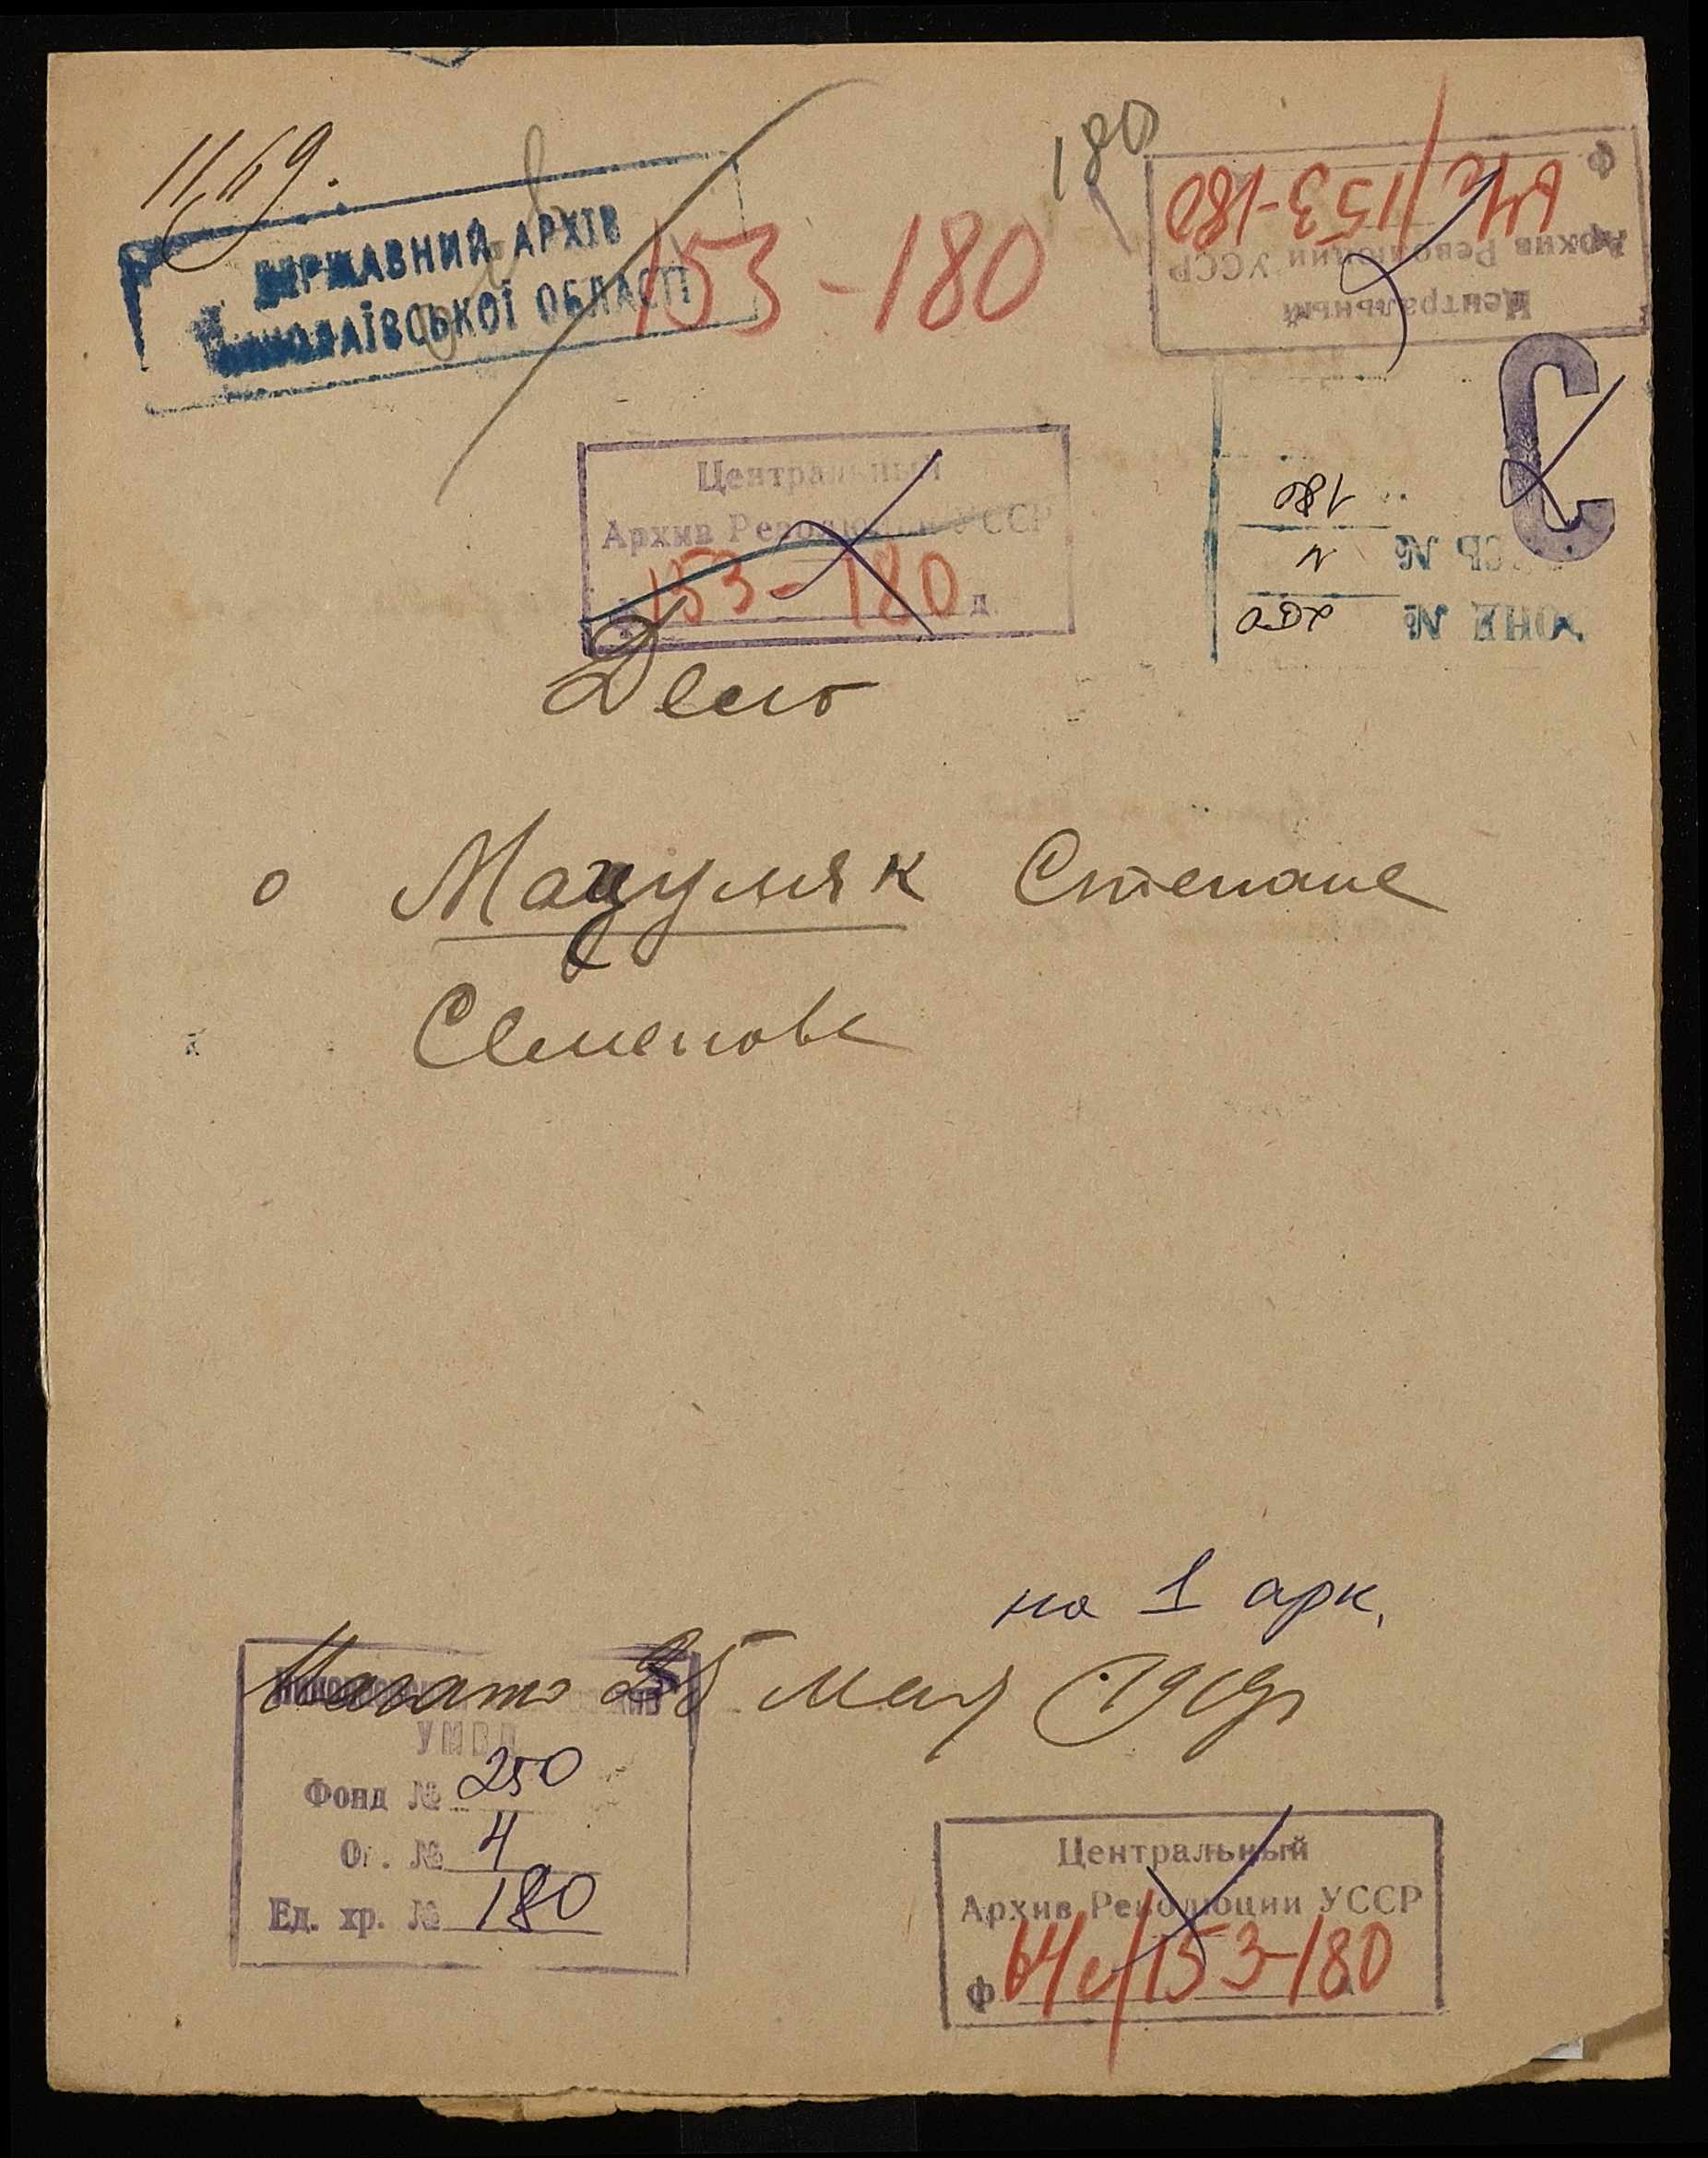 11,69.
180
ДЕРЖАВНИЙ АРХІВ
МИКОЛАЇВСЬКОЇ ОБЛАСТІ
153-180
Центральный
Архив Революции УССР
Ф 64с/153-180
С
Центральный
Архив Революции УССР
153-180 д.
ФОНД № 250
180
Дело
о Мацумяк Степане
Семенове
на 1 арк.
Начато 25 мая 1919 г
УМВД
Фонд № 250
Оп. № 4
Ед. хр. № 180
Центральный
Архив Революции УССР
Ф 64с/153-180